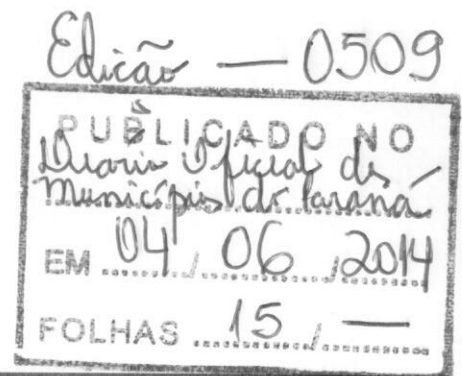 Edição — 0509
PUBLICADO NO
Diario Oficial dos
Municípios do Paraná
EM 04 / 06 / 2014
FOLHAS 15 / —